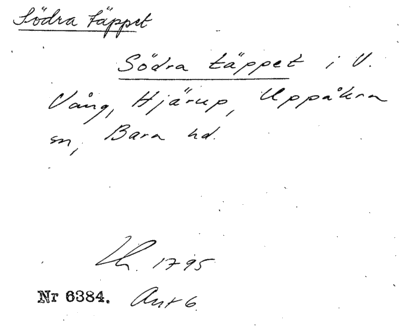 Södra täppet
Södra täppet i V.
Vång, Hjärup, Uppåkra
sn, Bara hd.
Lh. 1795
Nr 6384. Akt 6.